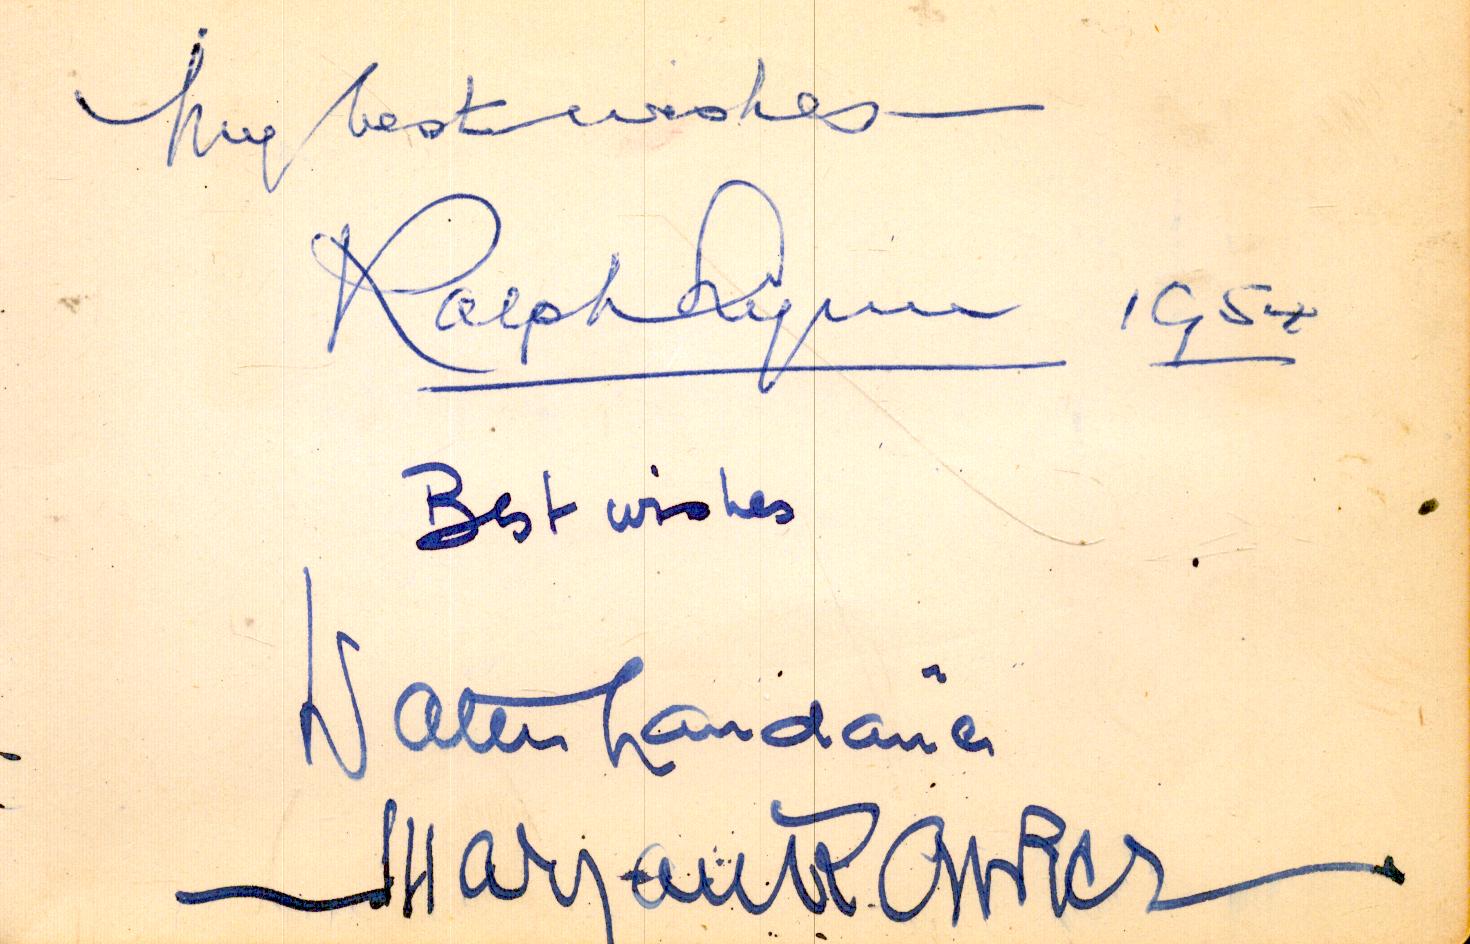 My best wishes
Ralph Lynn 1954
Best wishes
Walter Landauer
Maryan Rawicz